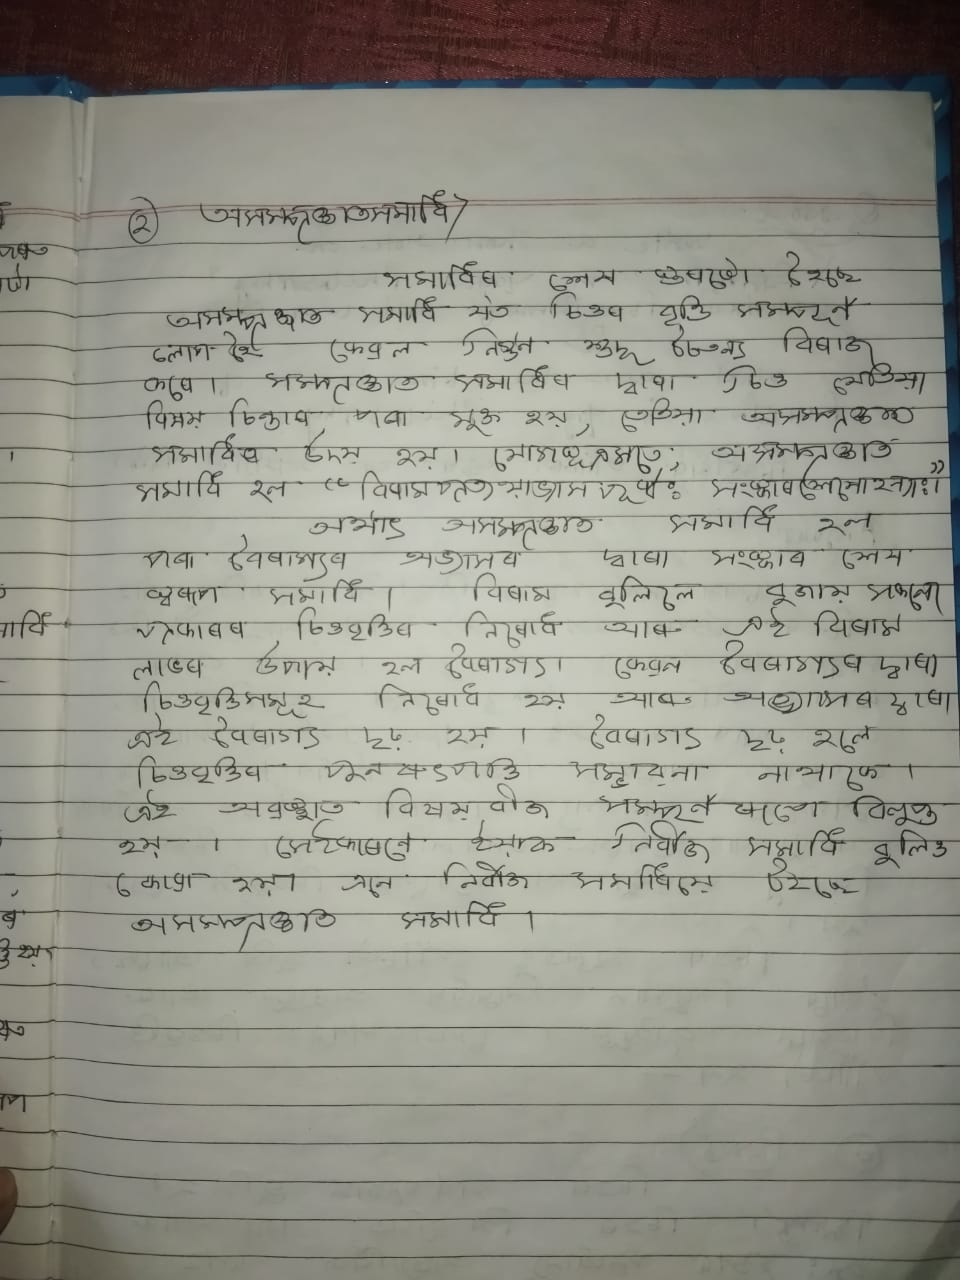 ২ অসমপ্ৰজ্ঞাতসমাধি
সমাধিৰ শেষ স্তৰটো হৈছে
অসমপ্ৰজ্ঞাত সমাধি য'ত চিত্তৰ বৃত্তি সমপূৰ্ন
লোপ হৈ কেৱল নিৰ্গুন শুদ্ধ চৈতন্য বিৰাজ
কৰে। সমপ্ৰজ্ঞাত সমাধিৰ দ্বাৰা চিত্ত যেতিয়া
বিষয় চিন্তাৰ পৰা মুক্ত হয়, তেতিয়া অসমপ্ৰজ্ঞাত
সমাধিৰ উদয় হয়। যোগসূত্ৰমতে, অসমপ্ৰজ্ঞাত
সমাধি হল “বিৰামপ্ৰত্যয়াভ্যাসপূৰ্বঃ
অৰ্থাৎ অসমপ্ৰজ্ঞাত সমাধি হল
পৰা বৈৰাগ্যৰ অভ্যাসৰ দ্বাৰা সংস্কাৰ শেষ
স্বৰূপ সমাধি। বিৰাম বুলিলে বুজায় সকলো
প্ৰকাৰৰ চিত্তবৃত্তিৰ নিৰোধ আৰু এই বিৰাম
লাভৰ উপায় হল বৈৰাগ্য। কেৱল বৈৰাগ্যৰ দ্বাৰা
চিত্তবৃত্তিসমূহ নিৰোধ হয় আৰু অভ্যাসৰ দ্বাৰা
এই বৈৰাগ্য দৃঢ় হয়। বৈৰাগ্য দৃঢ় হলে
চিত্তবৃত্তিৰ সম্ভাৱনা নাথাকে।
এই অৱস্থাত বিষয় বীজ সমপূৰ্ন ৰূপে বিলুপ্ত
হয়। সেইকাৰনে ইয়াক নিৰ্বীজ সমাধি বুলিও
কোৱা হয়। এনে নিৰ্বীজ সমাধিয়ে হৈছে
অসমপ্ৰজ্ঞাত সমাধি।